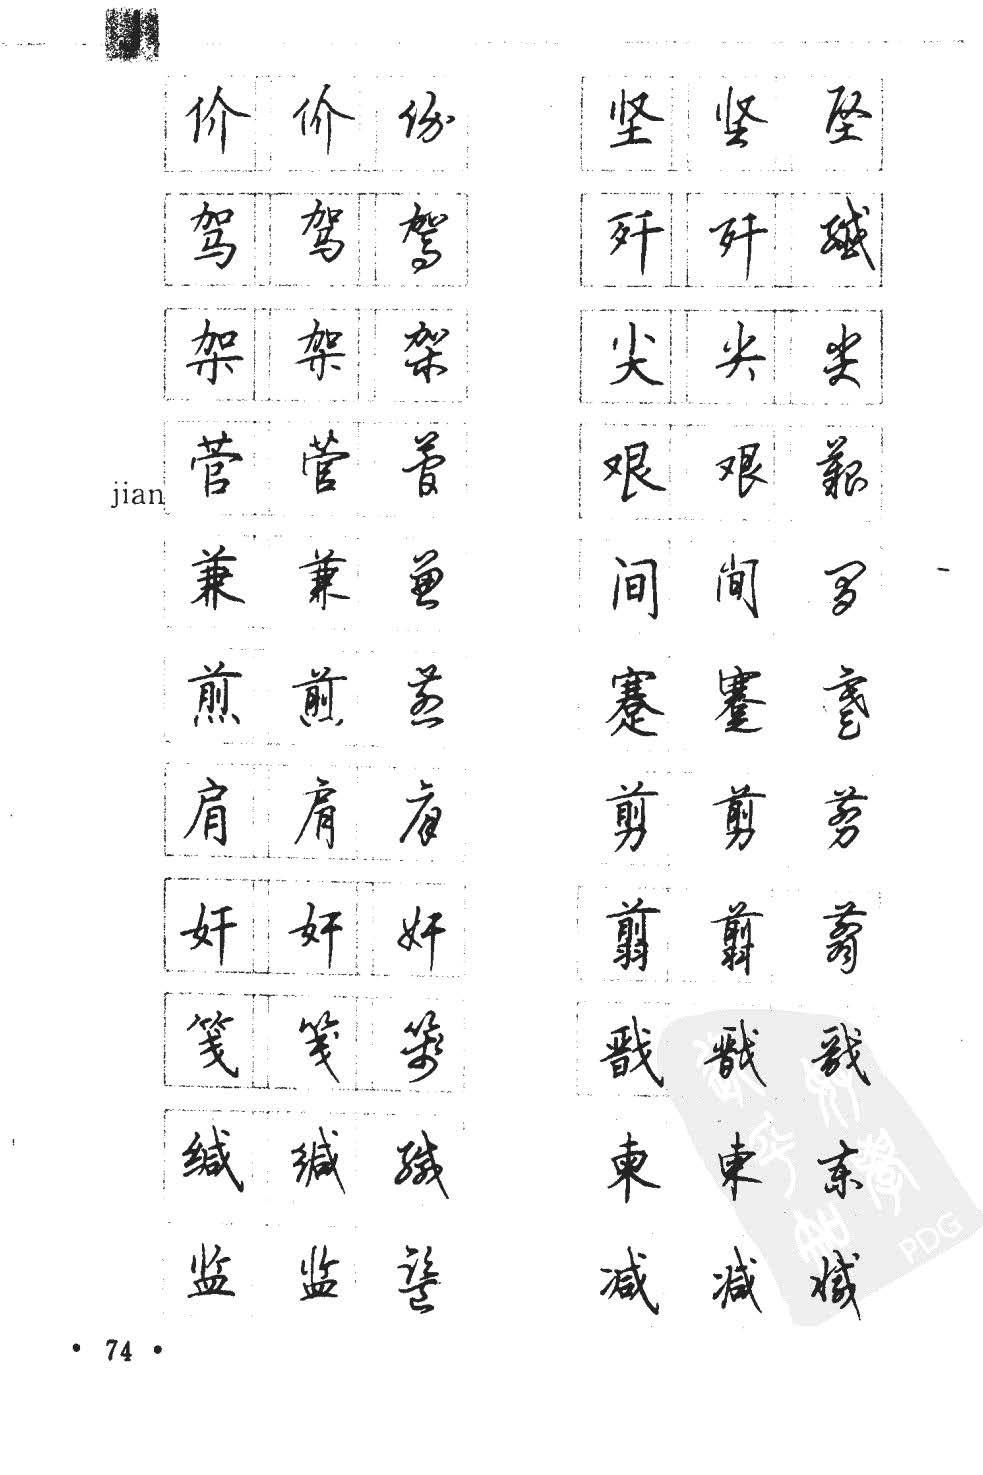 J
价 价 价
驾 驾 驾
架 架 架
菅 菅 菅
jian
兼 兼 兼
煎 煎 煎
肩 肩 肩
奸 奸 奸
笺 笺 笺
缄 缄 缄
监 监 监
坚 坚 坚
歼 歼 殲
尖 尖 尖
艰 艰 艱
间 间 间
蹇 蹇 蹇
剪 剪 剪
翦 翦 翦
戬 戬 戬
柬 柬 柬
减 减 减
PDG
• 74 •